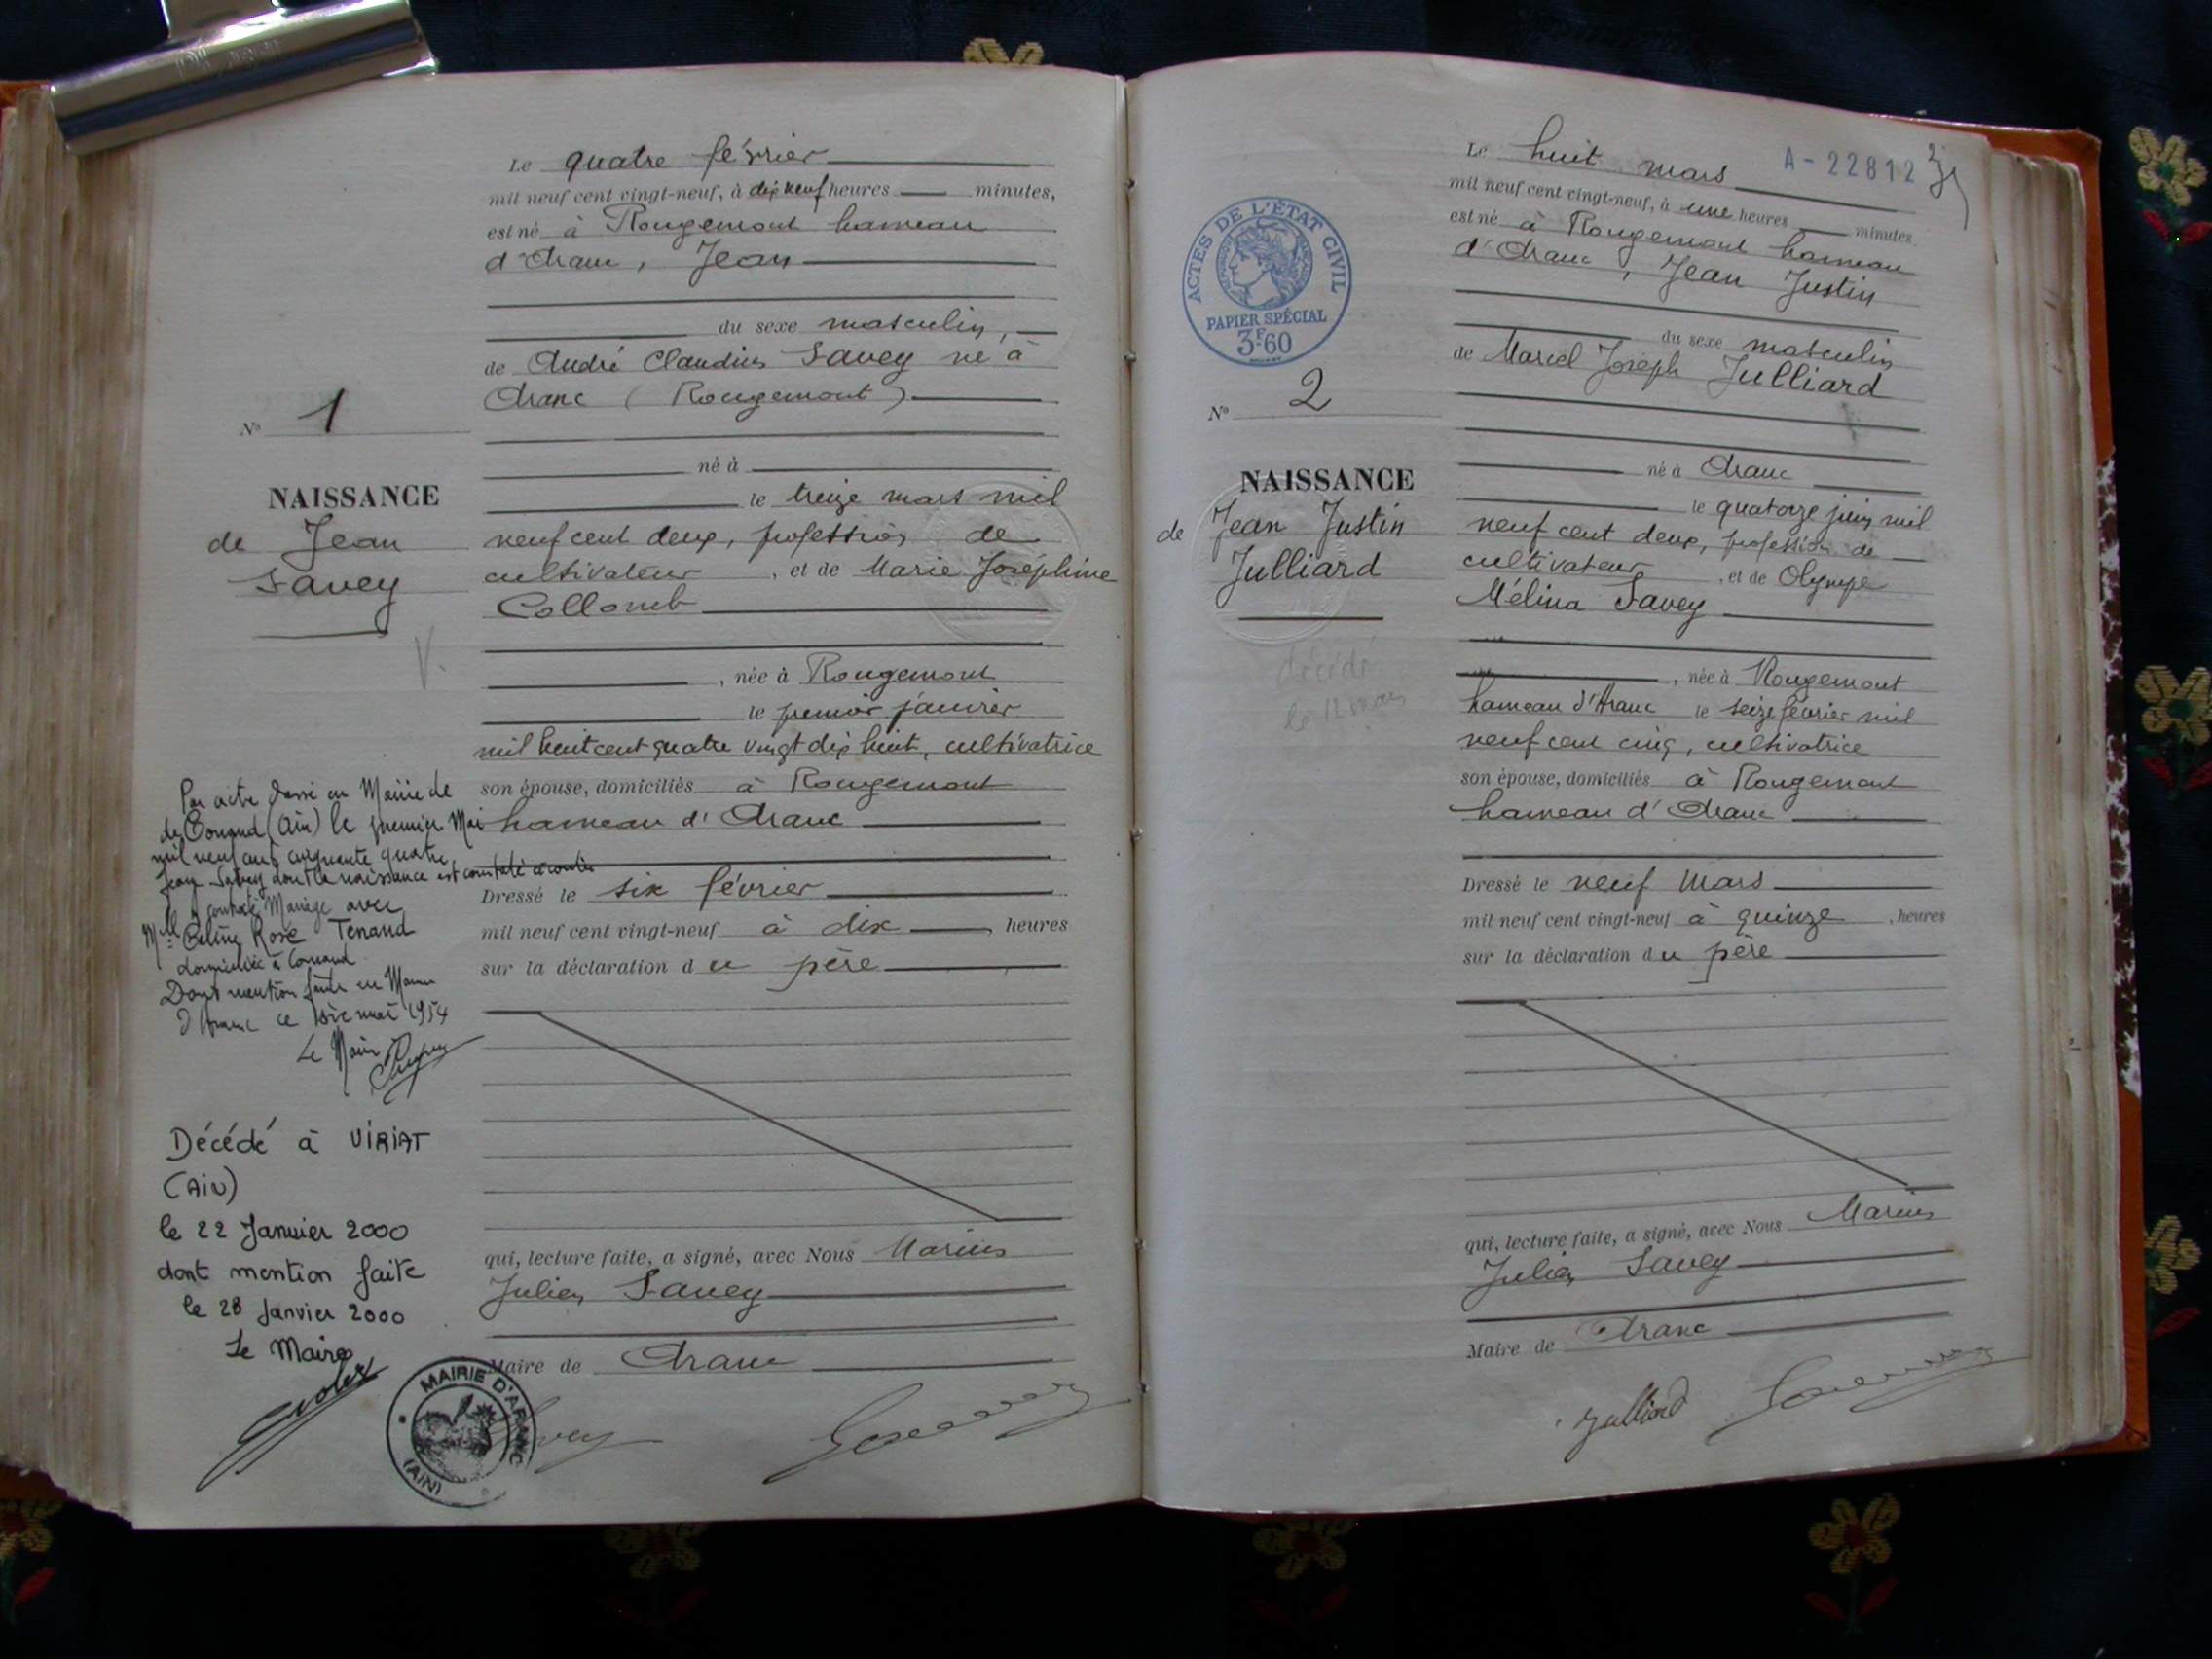 Le quatre février
mil neuf cent vingt-neuf, à dix neuf heures minutes,
est né à Rougemont hameau
d'Aranc, Jean
du sexe masculin,
de André Claudius Savey né à
Aranc (Rougemont)
né à
le treize mars mil
neuf cent deux, profession de
cultivateur, et de Marie Joséphine
Collomb
, née à Rougemont
le premier janvier
mil huit cent quatre vingt dix huit, cultivatrice
son épouse, domiciliés à Rougemont
hameau d'Aranc
Dressé le six février
mil neuf cent vingt-neuf à dix, heures
sur la déclaration du père
qui, lecture faite, a signé, avec Nous Marius
Julien Savey
Maire de Aranc
Savey
N° 1
NAISSANCE
de Jean
Savey
V.
Par acte dressé en Mairie de
de Conand (Ain) le premier Mai
mil neuf cent cinquante quatre,
Jean Savey dont la naissance est constatée ci contre
a contracté Mariage avec
Mlle Céline Rose Tenand
domiciliée à Conand
Dont mention faite en Mairie
d'Aranc ce mai 1954
Le Maire
Décédé à VIRIAT
(AIN)
le 22 Janvier 2000
dont mention faite
le 28 Janvier 2000
Le Maire
MAIRIE D'ARANC
(AIN)
A-22812
Le huit mars
mil neuf cent vingt-neuf, à une heures minutes.
est né à Rougemont hameau
d'Aranc, Jean Justin
du sexe masculin
de Marcel Joseph Julliard
né à Aranc
le quatorze juin mil
neuf cent deux, profession de
cultivateur, et de Olympe
Mélina Savey
, née à Rougemont
hameau d'Aranc le seize février mil
neuf cent cinq, cultivatrice
son épouse, domiciliés à Rougemont
hameau d'Aranc
Dressé le neuf Mars
mil neuf cent vingt-neuf à quinze, heures
sur la déclaration du père
qui, lecture faite, a signé, avec Nous Marius
Julien Savey
Maire de Aranc
Julliard
ACTES DE L'ÉTAT CIVIL
PAPIER SPÉCIAL
3F60
N° 2
NAISSANCE
de Jean Justin
Julliard
décédé
le 12 mars